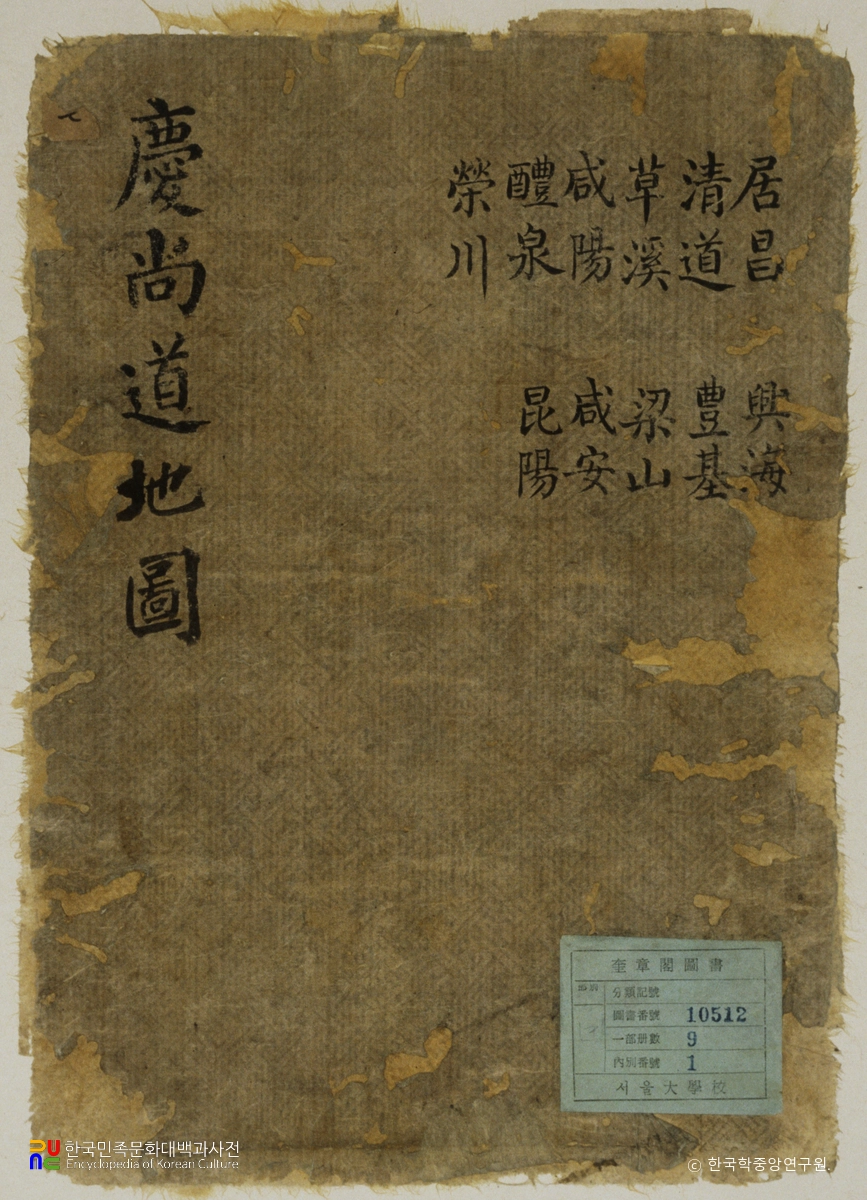 慶尚道地圖
居昌
清道
草溪
咸陽
醴泉
榮川
興海
豊基
梁山
咸安
昆陽
奎章閣圖書
分類記號
圖書番號 10512
一部册數 9
內別番號 1
서울大學校
한국민족문화대백과사전
Encyclopedia of Korean Culture
ⓒ 한국학중앙연구원.